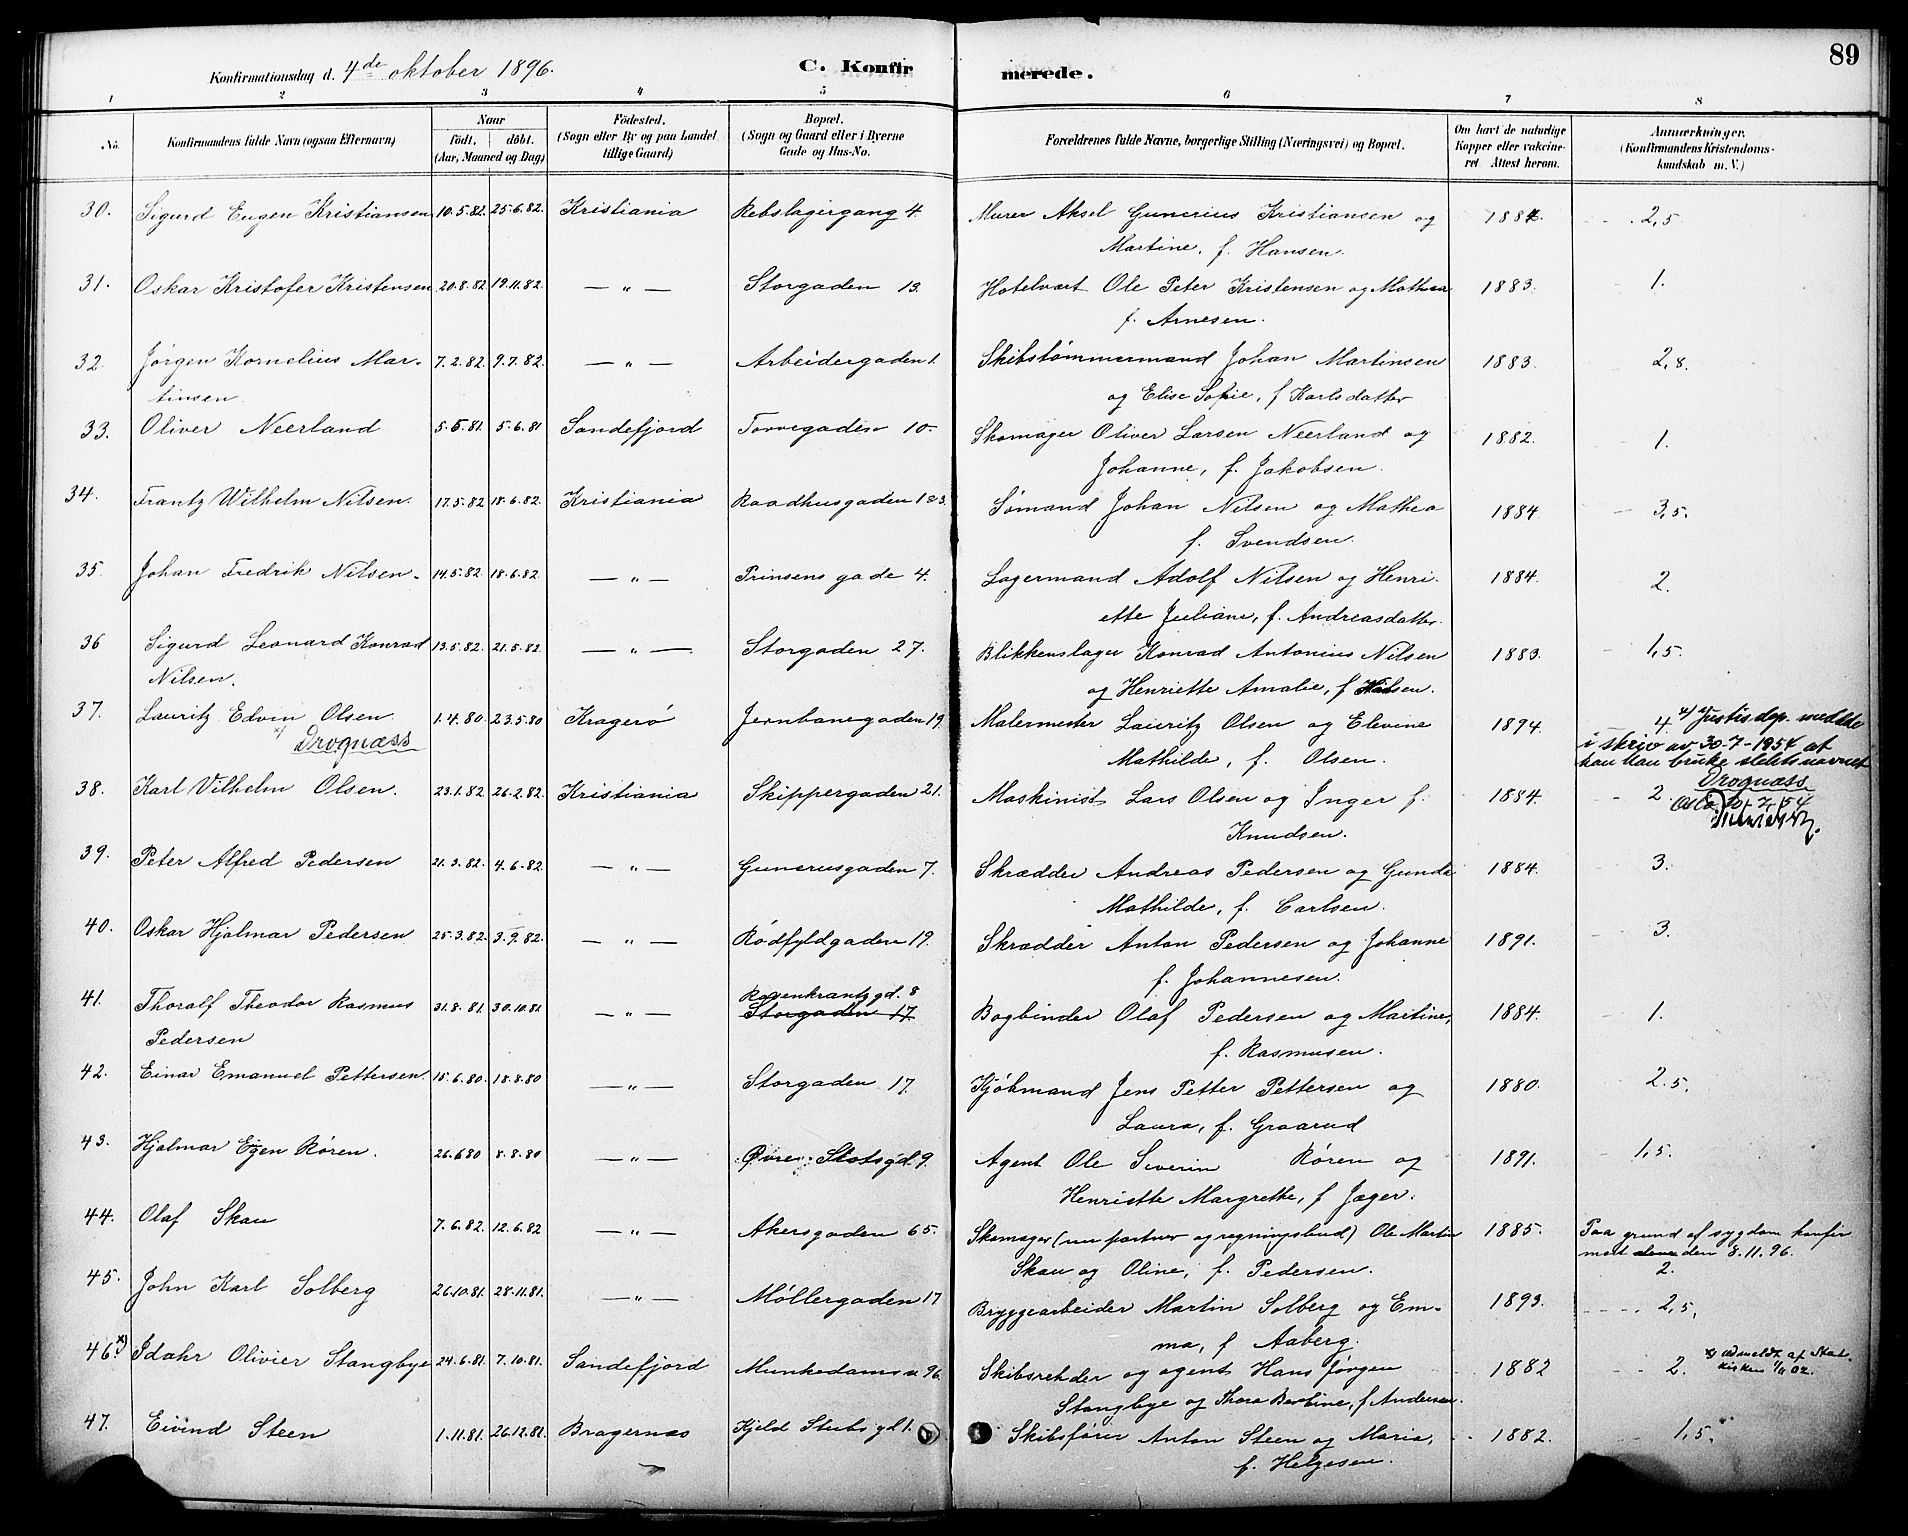 89
Konfirmationsdag d. 4de oktober 1896. C. Konfirmerede.
1 2 3 4 5 6 7 8
No. Konfirmandens fulde Navn (ogsaa Efternavn) Naar født. døbt. (Aar, Maaned og Dag) Fødested. (Sogn eller By og paa Landet tillige Gaard) Bopæl. (Sogn og Gaard eller i Byerne Gade og Hus-No. Forældrenes fulde Navne, borgerlige Stilling (Næringsvei) og Bopæl. Om havt de naturlige Kopper eller vakcineret. Attest herom. Anmærkninger. (Konfirmandens Kristendomskundskab m. V.)
30. Sigurd Eugen Kristiansen 10.5.82. 25.6.82. Kristiania Rebslagergang 4. Murer Aksel Gunerius Kristiansen og 1884. 2,5
Martine, f. Hansen.
31. Oskar Kristofer Kristensen 20.8.82 19.11.82. — " — Storgaden 13. Hotelvært Ole Peter Kristensen og Mathea 1883. 1.
f. Arnesen.
32. Jørgen Kornelius Mar- 7.2.82. 9.7.82. — " — Arbeidergaden 1. Skibstømmermand Johan Martinsen 1883. 2,8.
tinsen. og Elise Sofie, f Karlsdatter
33. Oliver Neerland 5.5.81. 5.6.81 Sandefjord Torvegaden 10. Skomager Oliver Larsen Neerland og 1882. 1.
Johanne, f. Jakobsen.
34. Frantz Wilhelm Nilsen. 17.5.82 18.6.82. Kristiania Raadhusgaden 1 & 3. Sømand Johan Nilsen og Mathea 1884 3,5.
f. Svendsen.
35. Johan Fredrik Nilsen. 14.5.82 18.6.82. — " — Prinsens gade 4. Lagermand Adolf Nilsen og Henri- 1884. 2.
ette Juliane, f. Andreasdatter.
36 Sigurd Leonard Konrad 13.5.82. 21.5.82 — " — Storgaden 27. Blikkenslager Konrad Antonius Nilsen 1883. 1,5.
Nilsen. og Henriette Amalie, f Nilsen.
37. Lauritz Edvin Olsen. 1.4.80 23.5.80 Kragerø Jernbanegaden 19. Malermester Lauritz Olsen og Elevine 1894. 4. x/ Justisdep. meddelte
x/ Drognæss Mathilde, f. Olsen. i skriv av 30-7-1954 at
han kan bruke slektsnavnet
Drognæss
38. Karl Vilhelm Olsen. 23.1.82 26.2.82. Kristiania Skippergaden 21. Maskinist Lars Olsen og Inger f. 1884. 2. Oslo 30-7-54
Knudsen.
39. Peter Alfred Pedersen 21.3.82. 4.6.82. — " — Gunerusgaden 7. Skrædder Andreas Pedersen og Gunda 1884. 3.
Mathilde, f. Carlsen.
40. Oskar Hjalmar Pedersen 25.3.82. 3.9.82. — " — Rødfyldgaden 19. Skrædder Anton Pedersen og Johanne 1891. 3.
f. Johannesen.
41. Thoralf Theodor Rasmus 31.8.81. 30.10.81. — " — Rosenkrantzgd. 8 Storgaden 17. Bogbinder Olaf Pedersen og Martine, 1884. 1.
Pedersen f. Rasmusen.
42. Einar Emanuel Pettersen. 15.6.80. 18.8.80 — " — Storgaden 17. Kjøbmand Jens Petter Pettersen og 1880. 2.5.
Laura, f. Graarud
43. Hjalmar Egen Røren. 26.6.80 8.8.80 — " — Øvre Slotsgd. 9. Agent Ole Severin Røren og 1891. 1,5.
Henriette Margrethe, f Jæger.
44. Olaf Skau 7.6.82. 12.6.82 — " — Akersgaden 65. Skomager (nu partner og regningsbud) Ole Martin 1885. Paa grund af sygdom konfir
Skau og Oline, f. Pedersen. meret den 8.11.96.
2.
45. John Karl Solberg 26.10.81. 28.11.81. — " — Møllergaden 17 Bryggearbeider Martin Solberg og Em- 1893. 2,5,
ma, f Aaberg.
46. x) Idahr Olivier Stangbye 24.6.81. 7.10.81. Sandefjord Munkedamsv. 96. Skibsrehder og agent Hans Jørgen 1882 2. x) udmeldt af Stats
Stangbye og Thora Bertine, f Andersen. kirken 1/11 02.
47. Eivind Steen 1.11.81. 26.12.81. Bragernæs Kjeld Stubs gd 1. Skibsfører Anton Steen og Maria, 1882. 1,5.
f. Helgesen.